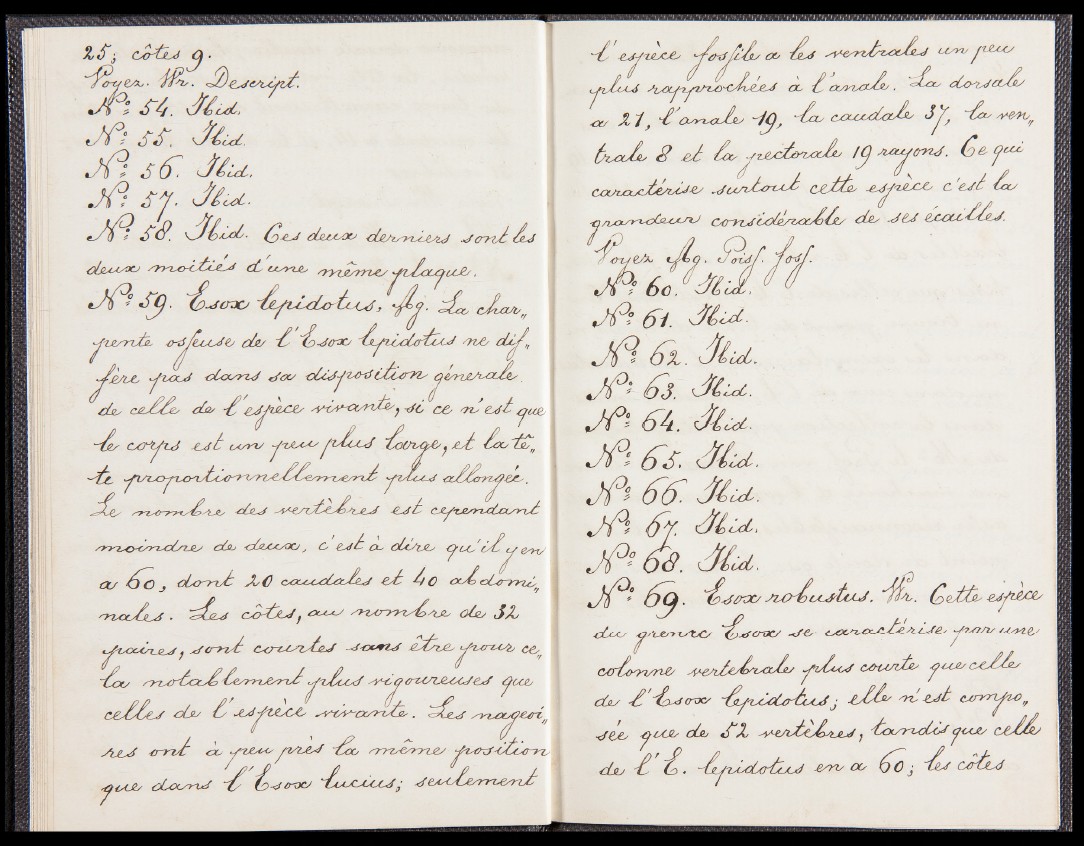 25; côtes 9.
Voyez. Wr. Descript.
Nº 54. Ibid.
Nº 55. Ibid.
Nº 56. Ibid.
Nº 57. Ibid.
Nº 58. Ibid. Ces deux derniers sont les
deux moitiés d'une même plaque.
Nº 59. Esox lepidotus, Ag. La char„
pente osſeuse de l'Esox lepidotus ne dif„
fère pas dans sa disposition génerale
de celle de l'espèce vivante, si ce n'est que
le corps est un peu plus large, et la tê„
te proportionnellement plus allongée.
Le nombre des vertèbres est cependant
moindre de deux, c'est à dire qu'il y en
a 60, dont 20 caudales et 40 abdomi„
nales. Les côtes, au nombre de 32
paires, sont courtes sans être pour ce„
la notablement plus vigoureuses que
celles de l'espèce vivante. Les nageoi„
res ont à peu près la même position
que dans l'Esox lucius; seulement
l'espèce fosſile a les ventrales un peu
plus rapprochées à l'anale. La dorsale
a 21, l'anale 19, la caudale 37, la ven„
trale 8 et la pectorale 19 rayons. Ce qui
caractérise surtout cette espèce c'est la
grandeur considérable de ses écailles.
Voyez Ag. Poisſ. fosſ.
Nº 60. Ibid.
Nº 61. Ibid.
Nº 62. Ibid.
Nº 63. Ibid.
Nº 64. Ibid.
Nº 65. Ibid.
Nº 66. Ibid.
Nº 67. Ibid.
Nº 68. Ibid.
Nº 69. Esox robustus. Wr. Cette espèce
du grenre Esox se caractérise par une
colonne vertebrale plus courte que celle
de l'Esox lepidotus; elle n'est compo„
sée que de 52 vertèbres, tandis que celle
de l'E. lepidotus en a 60; les côtes